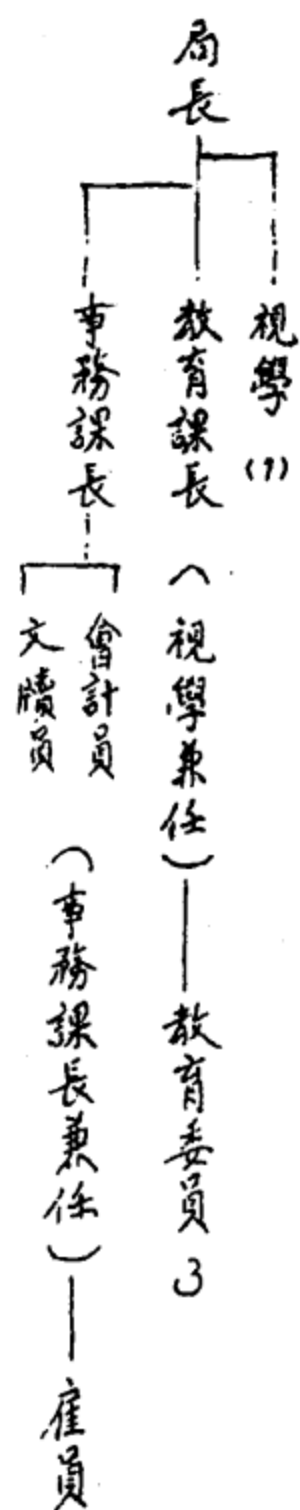 局長
視學 (1)
教育課長(視學兼任)——教育委員 3
事務課長
會計員
文牘員
(事務課長兼任)——雇員